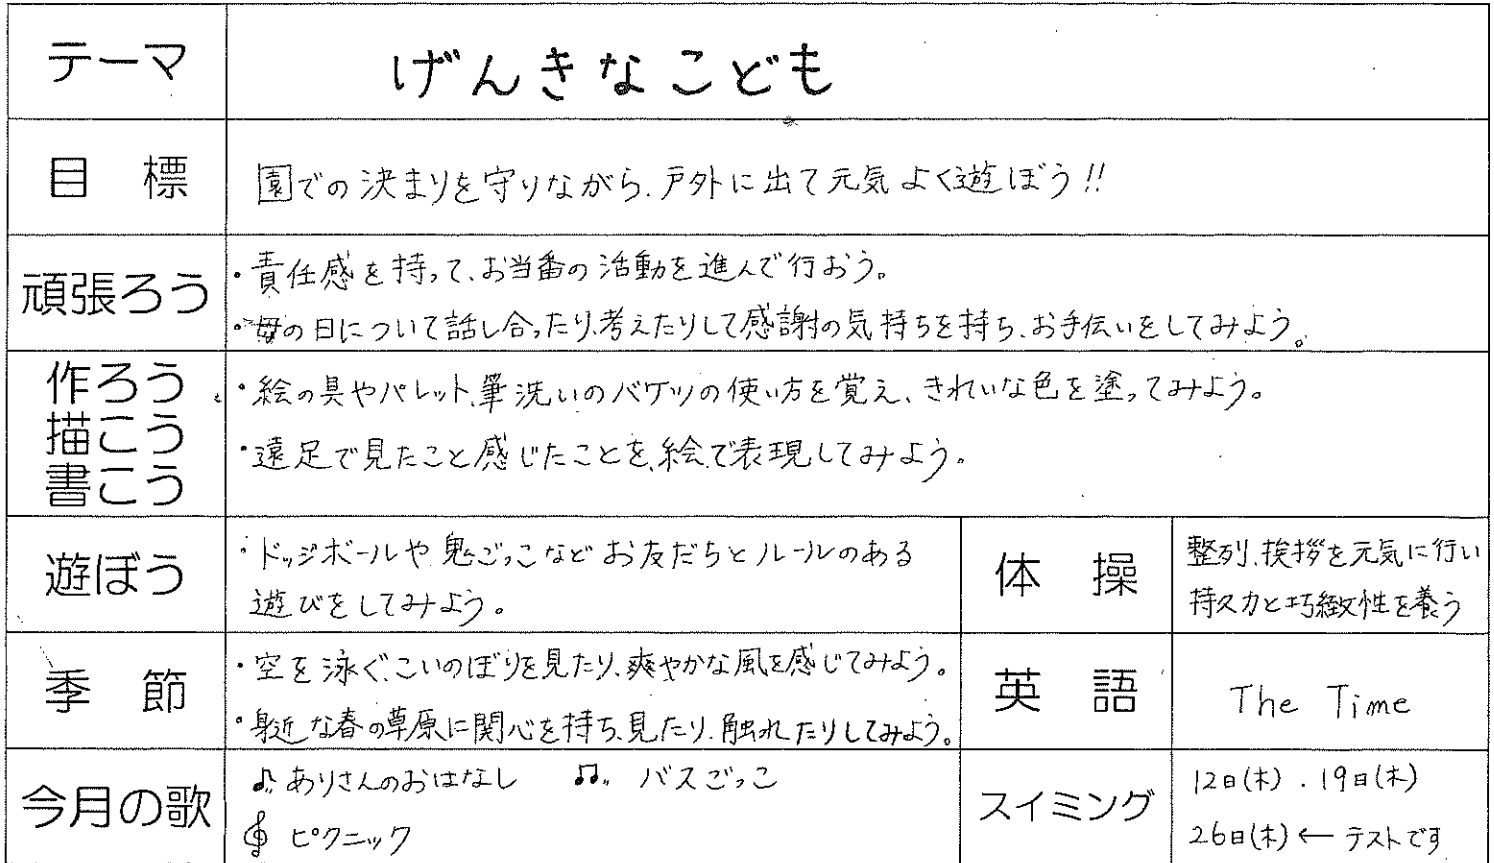 テーマ
げんきなこども
目標
園での決まりを守りながら、戸外に出て元気よく遊ぼう!!
頑張ろう
・責任感を持って、お当番の活動を進んで行おう。
・母の日について話し合ったり、考えたりして感謝の気持ちを持ち、お手伝いをしてみよう。
作ろう
描こう
書こう
・絵の具やパレット、筆洗いのバケツの使い方を覚え、きれいな色を塗ってみよう。
・遠足で見たこと感じたことを、絵で表現してみよう。
遊ぼう
・ドッジボールや鬼ごっこなどお友だちとルールのある
遊びをしてみよう。
体操
整列、挨拶を元気に行い
持久力と巧緻性を養う
季節
・空を泳ぐ、こいのぼりを見たり、爽やかな風を感じてみよう。
・身近な春の草原に関心を持ち、見たり、触れたりしてみよう。
英語
The Time
今月の歌
♪ありさんのおはなし ♫ バスごっこ
𝄞 ピクニック
スイミング
12日(木).19日(木)
26日(木)←テストです